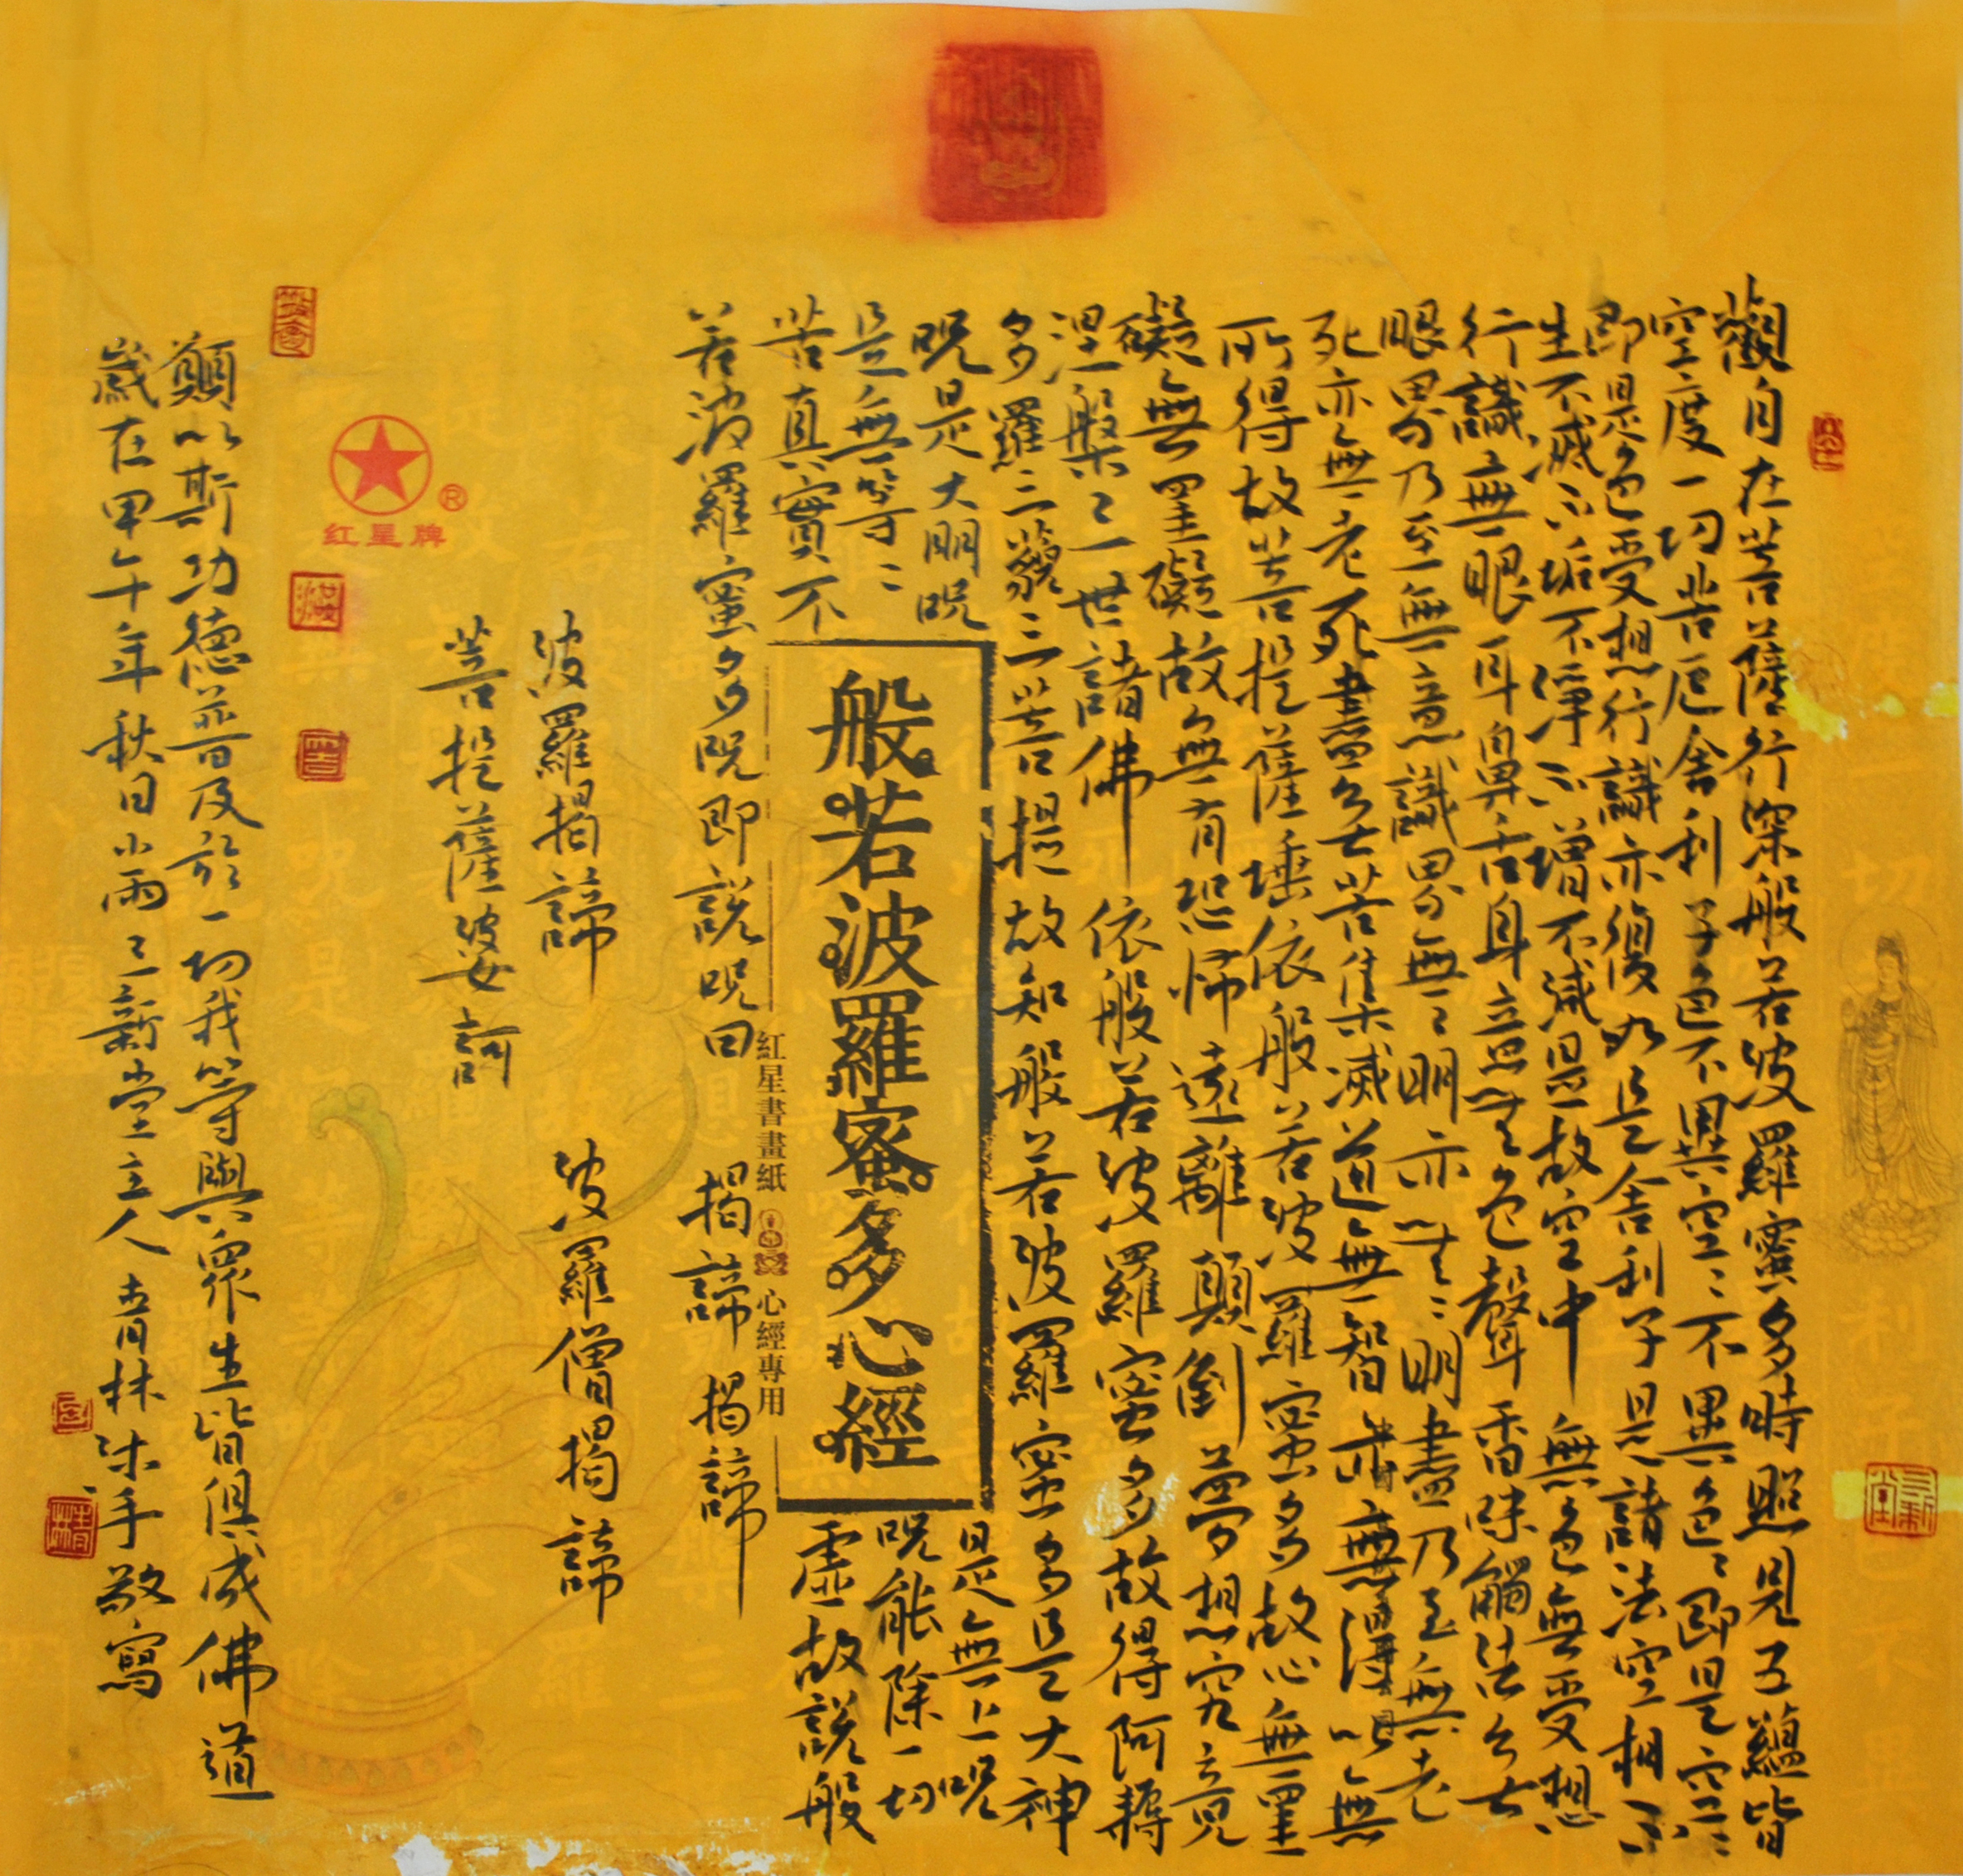 觀自在菩薩行深般若波羅蜜多時照見五蘊皆
空度一切苦厄舍利子色不異空〻不異色〻即是空〻
即是色受想行識亦復如是舍利子是諸法空相不
生不滅不垢不淨不增不減是故空中無色無受想
行識無眼耳鼻舌身意無色聲香味觸法無
眼界乃至無意識界無〻明亦無〻明盡乃至無老
死亦無老死盡無苦集滅道無智亦無得以無
所得故菩提薩埵依般若波羅蜜多故心無罣
礙〻無罣礙故無有恐怖遠離顛倒夢想究竟
涅槃三世諸佛依般若波羅蜜多故得阿耨
多羅三藐三菩提故知般若波羅蜜多是大神
呪是大明呪是無上呪
是無等〻呪能除一切
苦真實不虛故說般
般若波羅蜜多心經
紅星書畫紙 心經專用
若波羅蜜多呪即說呪曰 揭諦揭諦
波羅揭諦 波羅僧揭諦
菩提薩婆訶
红星牌
®
願以斯功德普及於一切我等與眾生皆俱成佛道
歲在甲午年秋日小雨三新堂主人青林沐手敬寫
三新堂
青林